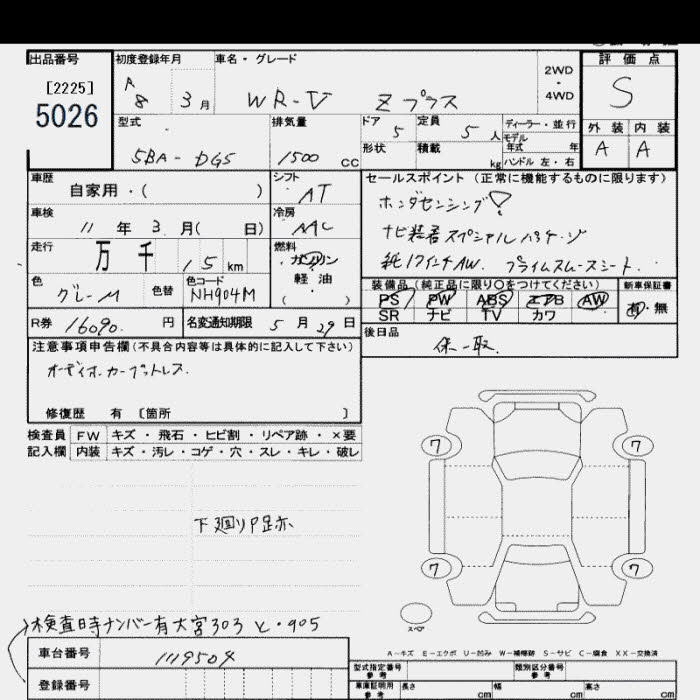 出品番号 初度登録年月 車名・グレード 2WD・4WD 評価点
[2225]
5026
A 8 3月 WR-V Z プラス S
型式 排気量 ドア 5 定員 5人 ディーラー・並行 外装 内装
モデル年式 年
5BA-DG5 1500cc 形状 積載 kg ハンドル 左・右 A A
車歴 シフト セールスポイント (正常に機能するものに限ります)
自家用・( ) AT ホンダセンシング!
車検 冷房
11年 3月( 日) AAC ナビ装着スペシャルパッケージ
走行 燃料
万 千 15km ガソリン 純17インチAW. プライムスムースシート.
軽油
( )
色 色替 色コード 装備品 (純正品に限り○をつけてください) 新車保証書
グレーM NH904M PS PW ABS エアB AW 有・無
SR ナビ TV カワ
R券 16090.円 名変通知期限 5月29日 後日品
保-取.
注意事項申告欄 (不具合内容等は具体的に記入して下さい)
オーディオレスカープットレス.
修復歴 有 〔箇所 〕
検査員 FW キズ・飛石・ヒビ割・リペア跡・×要
記入欄 内装 キズ・汚レ・コゲ・穴・スレ・キレ・破レ
7 7
下廻りP足赤
7 7
スペア
検査時ナンバー有大宮303 と・905
A-キズ E-エクボ U-凹み W-補修跡 S-サビ C-腐食 XX-交換済
車台番号 1119504 型式指定番号 参考 類別区分番号 参考
登録番号 車庫証明用 参考 長さ cm 幅 cm 高さ cm